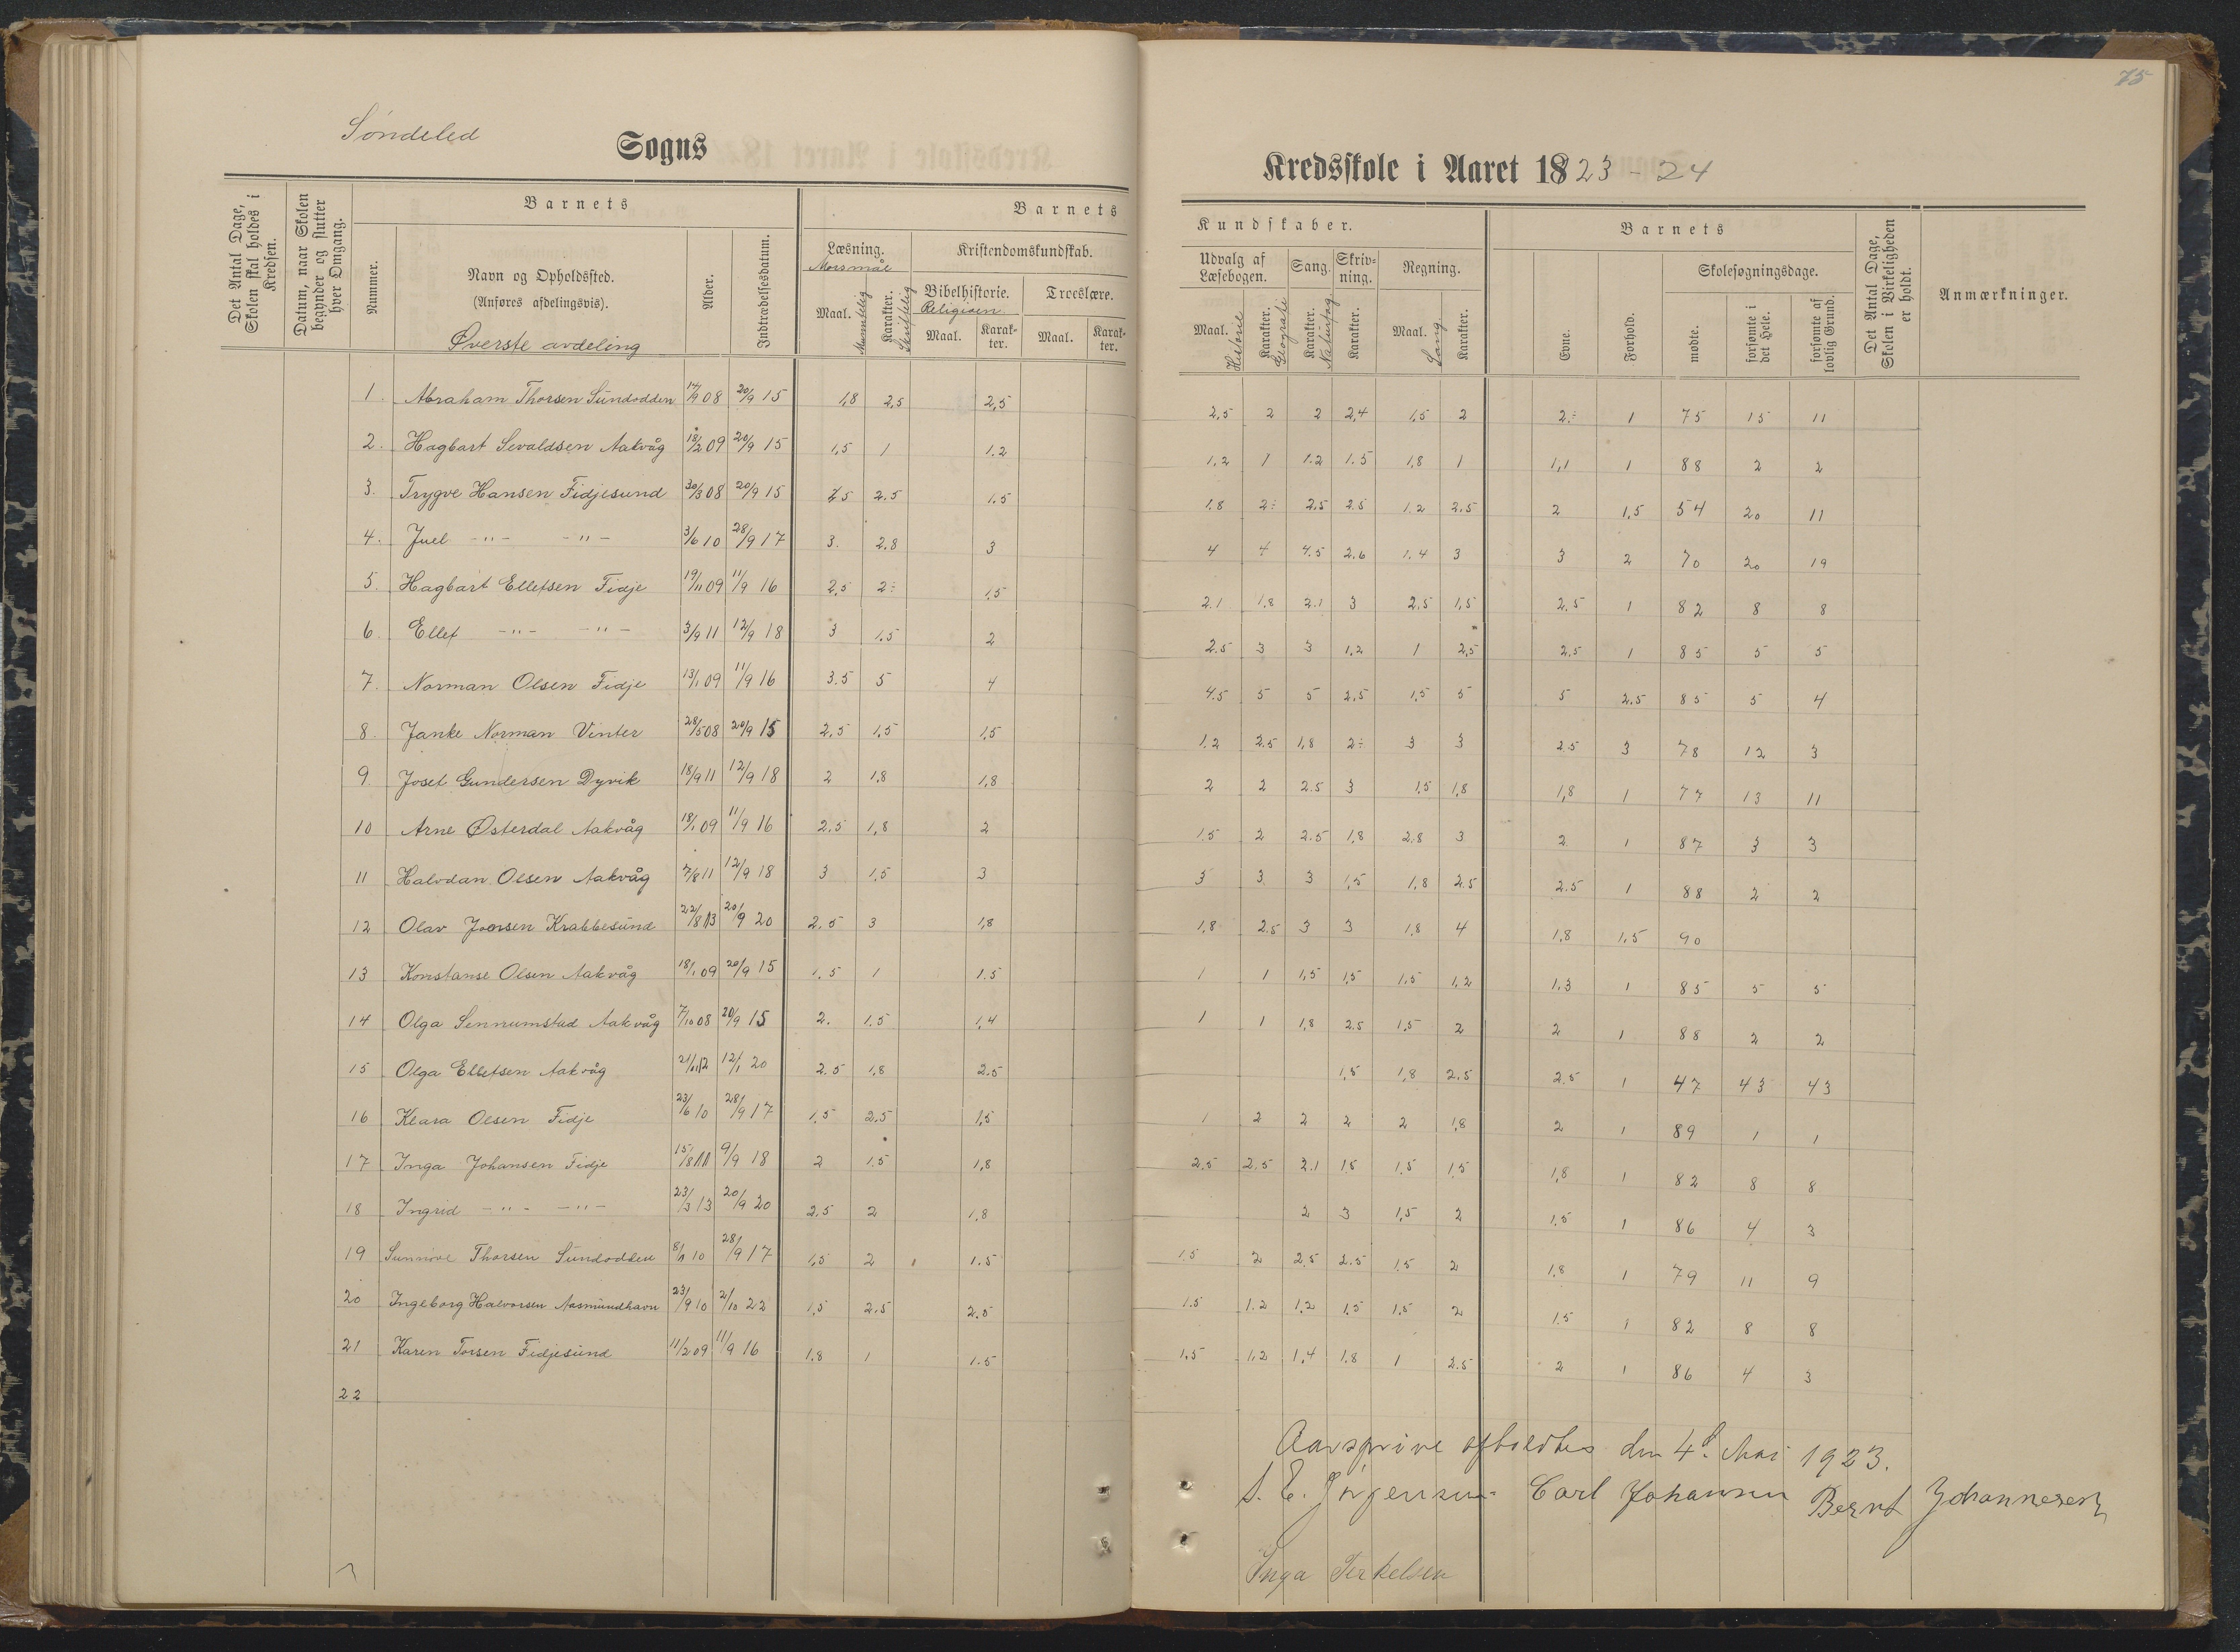 75
Søndeled Sogns
Kredsskole i Aaret 1823-24
Det Antal Dage, Skolen skal holdes i Kredsen.
Datum, naar Skolen begynder og slutter hver Omgang.
Barnets
Nummer.
Navn og Opholdssted.
(Anføres afdelingsvis).
Øverste avdeling
Alder.
Indtrædelsesdatum.
Barnets
Læsning.
Morsmål
Maal. Muntlig
Karakter. Skriftlig
Kristendomskundskab.
Bibelhistorie. Troeslære.
Religion
Maal. Karakter. Maal. Karakter.
Kundskaber.
Udvalg af Læsebogen. Sang. Skrivning. Regning.
Maal. Historie
Karakter. Geografi
Karakter. Naturfag
Karakter.
Maal. Sang.
Karakter.
Barnets
Evne.
Forhold.
Skolesøgningsdage.
mødte.
forsømte i det Hele.
forsømte af lovlig Grund.
Det Antal Dage, Skolen i Virkeligheden er holdt.
Anmærkninger.
1. Abraham Thorsen Sundodden 14/9 08 20/9 15 1,8 2,5 2,5 2,5 2 2 2,4 1,5 2 2÷ 1 75 15 11
2. Hagbart Sevaldsen Aakvåg 18/2 09 20/9 15 1,5 1 1.2 1,2 1 1.2 1.5 1,8 1 1,1 1 88 2 2
3. Trygve Hansen Fidjesund 30/3 08 20/9 15 2.5 2.5 1.5 1.8 2÷ 2.5 2.5 1.2 2.5 2 1,5 54 20 11
4. Juel -"- -"- 3/6 10 28/9 17 3. 2.8 3 4 4 4.5 2.6 1.4 3 3 2 70 20 19
5. Hagbart Ellefsen Fidje 19/11 09 11/9 16 2,5 2÷ 1,5 2.1 1,8 2.1 3 2,5 1,5 2,5 1 82 8 8
6. Ellef -"- -"- 3/9 11 12/9 18 3 1.5 2 2.5 3 3 1,2 1 2,5 2.5 1 85 5 5
7. Norman Olsen Fidje 13/1 09 11/9 16 3.5 5 4 4.5 5 5 2,5 1,5 5 5 2.5 85 5 4
8. Janke Norman Vinter 28/5 08 20/9 15 2,5 1,5 1,5 1.2 2.5 1,8 2÷ 3 3 2.5 3 78 12 3
9. Josef Gundersen Dyvik 18/9 11 12/9 18 2 1,8 1,8 2 2 2.5 3 1,5 1,8 1,8 1 77 13 11
10 Arne Østerdal Aakvåg 18/1 09 11/9 16 2.5 1,8 2 1.5 2 2.5 1,8 2,8 3 2 1 87 3 3
11 Halvdan Olsen Aakvåg 7/8 11 12/9 18 3 1,5 3 3 3 3 1,5 1,8 2.5 2.5 1 88 2 2
12 Olav Joonsen Krabbesund 22/8 13 20/9 20 2.5 3 1,8 1,8 2.5 3 3 1,8 4 1,8 1,5 90
13 Konstanse Olsen Aakvåg 18/1 09 20/9 15 1.5 1 1.5 1 1 1,5 1,5 1,5 1,2 1,3 1 85 5 5
14 Olga Sennumstad Aakvåg 7/10 08 20/9 15 2. 1.5 1,4 1 1 1,8 2.5 1,5 2 2 1 88 2 2
15 Olga Ellefsen Aakvåg 21/11 12 12/1 20 2.5 1,8 2.5 1,5 1,8 2.5 2.5 1 47 43 43
16 Klara Olsen Fidje 23/6 10 28/9 17 1.5 2.5 1,5 1 2 2 2 2 1,8 2 1 89 1 1
17 Inga Johansen Fidje 15/8 11 9/9 18 2 1.5 1,8 2.5 2.5 2.1 1.5 1,5 1,5 1,8 1 82 8 8
18 Ingrid -"- -"- 23/3 13 20/9 20 2,5 2 1.8 2 3 1,5 2 1.5 1 86 4 3
19 Sunnive Thorsen Sundodden 8/11 10 28/9 17 1,5 2 1.5 1.5 2 2.5 2.5 1.5 2 1,8 1 79 11 9
20 Ingeborg Halvorsen Aasmundhavn 23/9 10 2/10 22 1,5 2.5 2.5 1.5 1.2 1,2 1,5 1,5 2 1.5 1 82 8 8
21 Karen Torsen Fidjesund 11/2 09 11/9 16 1,8 1 1.5 1,5 1,2 1,4 1.8 1 2.5 2 1 86 4 3
22
Aarsprøve afholdtes den 4d. Mai 1923.
S. E. Jørgensen Carl Johansen Bernt Johannesen
Inga Terkelsen